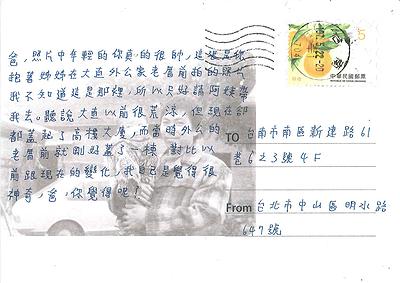 爸,照片中年輕的你真的很帥,這張是你
抱著姊姊在大直外公家老厝前拍的照片
我不知道這是那裡,所以只好請阿妹帶
我去。聽說大直以前很荒涼,但現在卻
都蓋起了高樓大廈,而當時外公的
老厝前就剛好蓋了一棟,對比以
前跟現在的變化,我自己是覺得很
神奇,爸,你覺得呢!
中華民國郵票
5
TO 台南市南區新建路61
巷6之3號4F
From 台北市中山區明水路
647號